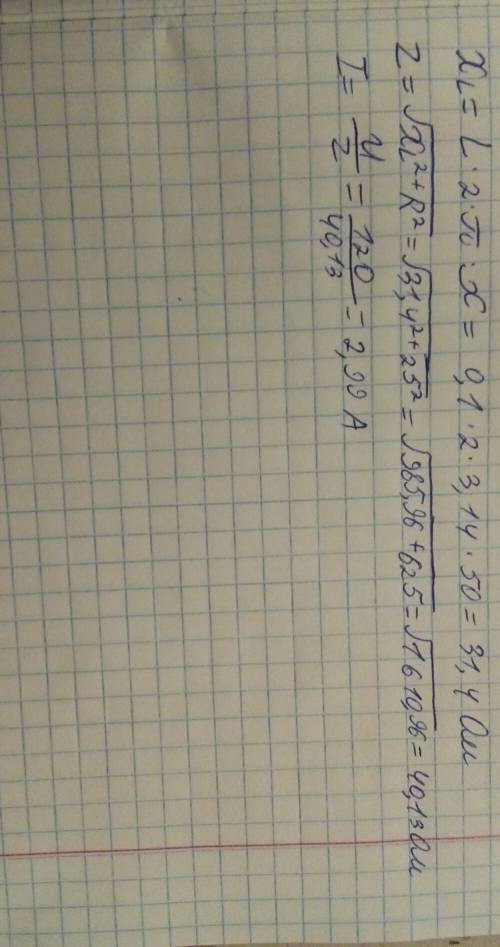 XL = L · 2 · π · x = 0,1 · 2 · 3,14 · 50 = 31,4 Ом
Z = √XL² + R² = √31,4² + 25² = √985,96 + 625 = √1610,96 = 40,13 Ом
I = U/Z = 120/40,13 = 2,99 А